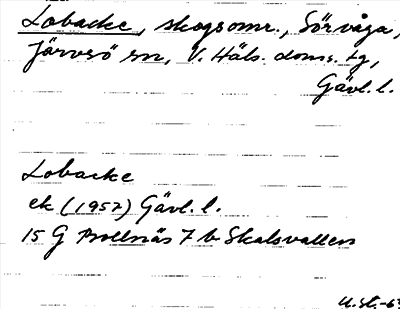 Lobacke, skogsomr., Sörvåga,
Järvsö sn, V. Häls. doms. tg,
Gävl. l.
Lobacke
ek (1957) Gävl. l.
15 G Bollnäs 7 b Skalsvallen
U. St. -63